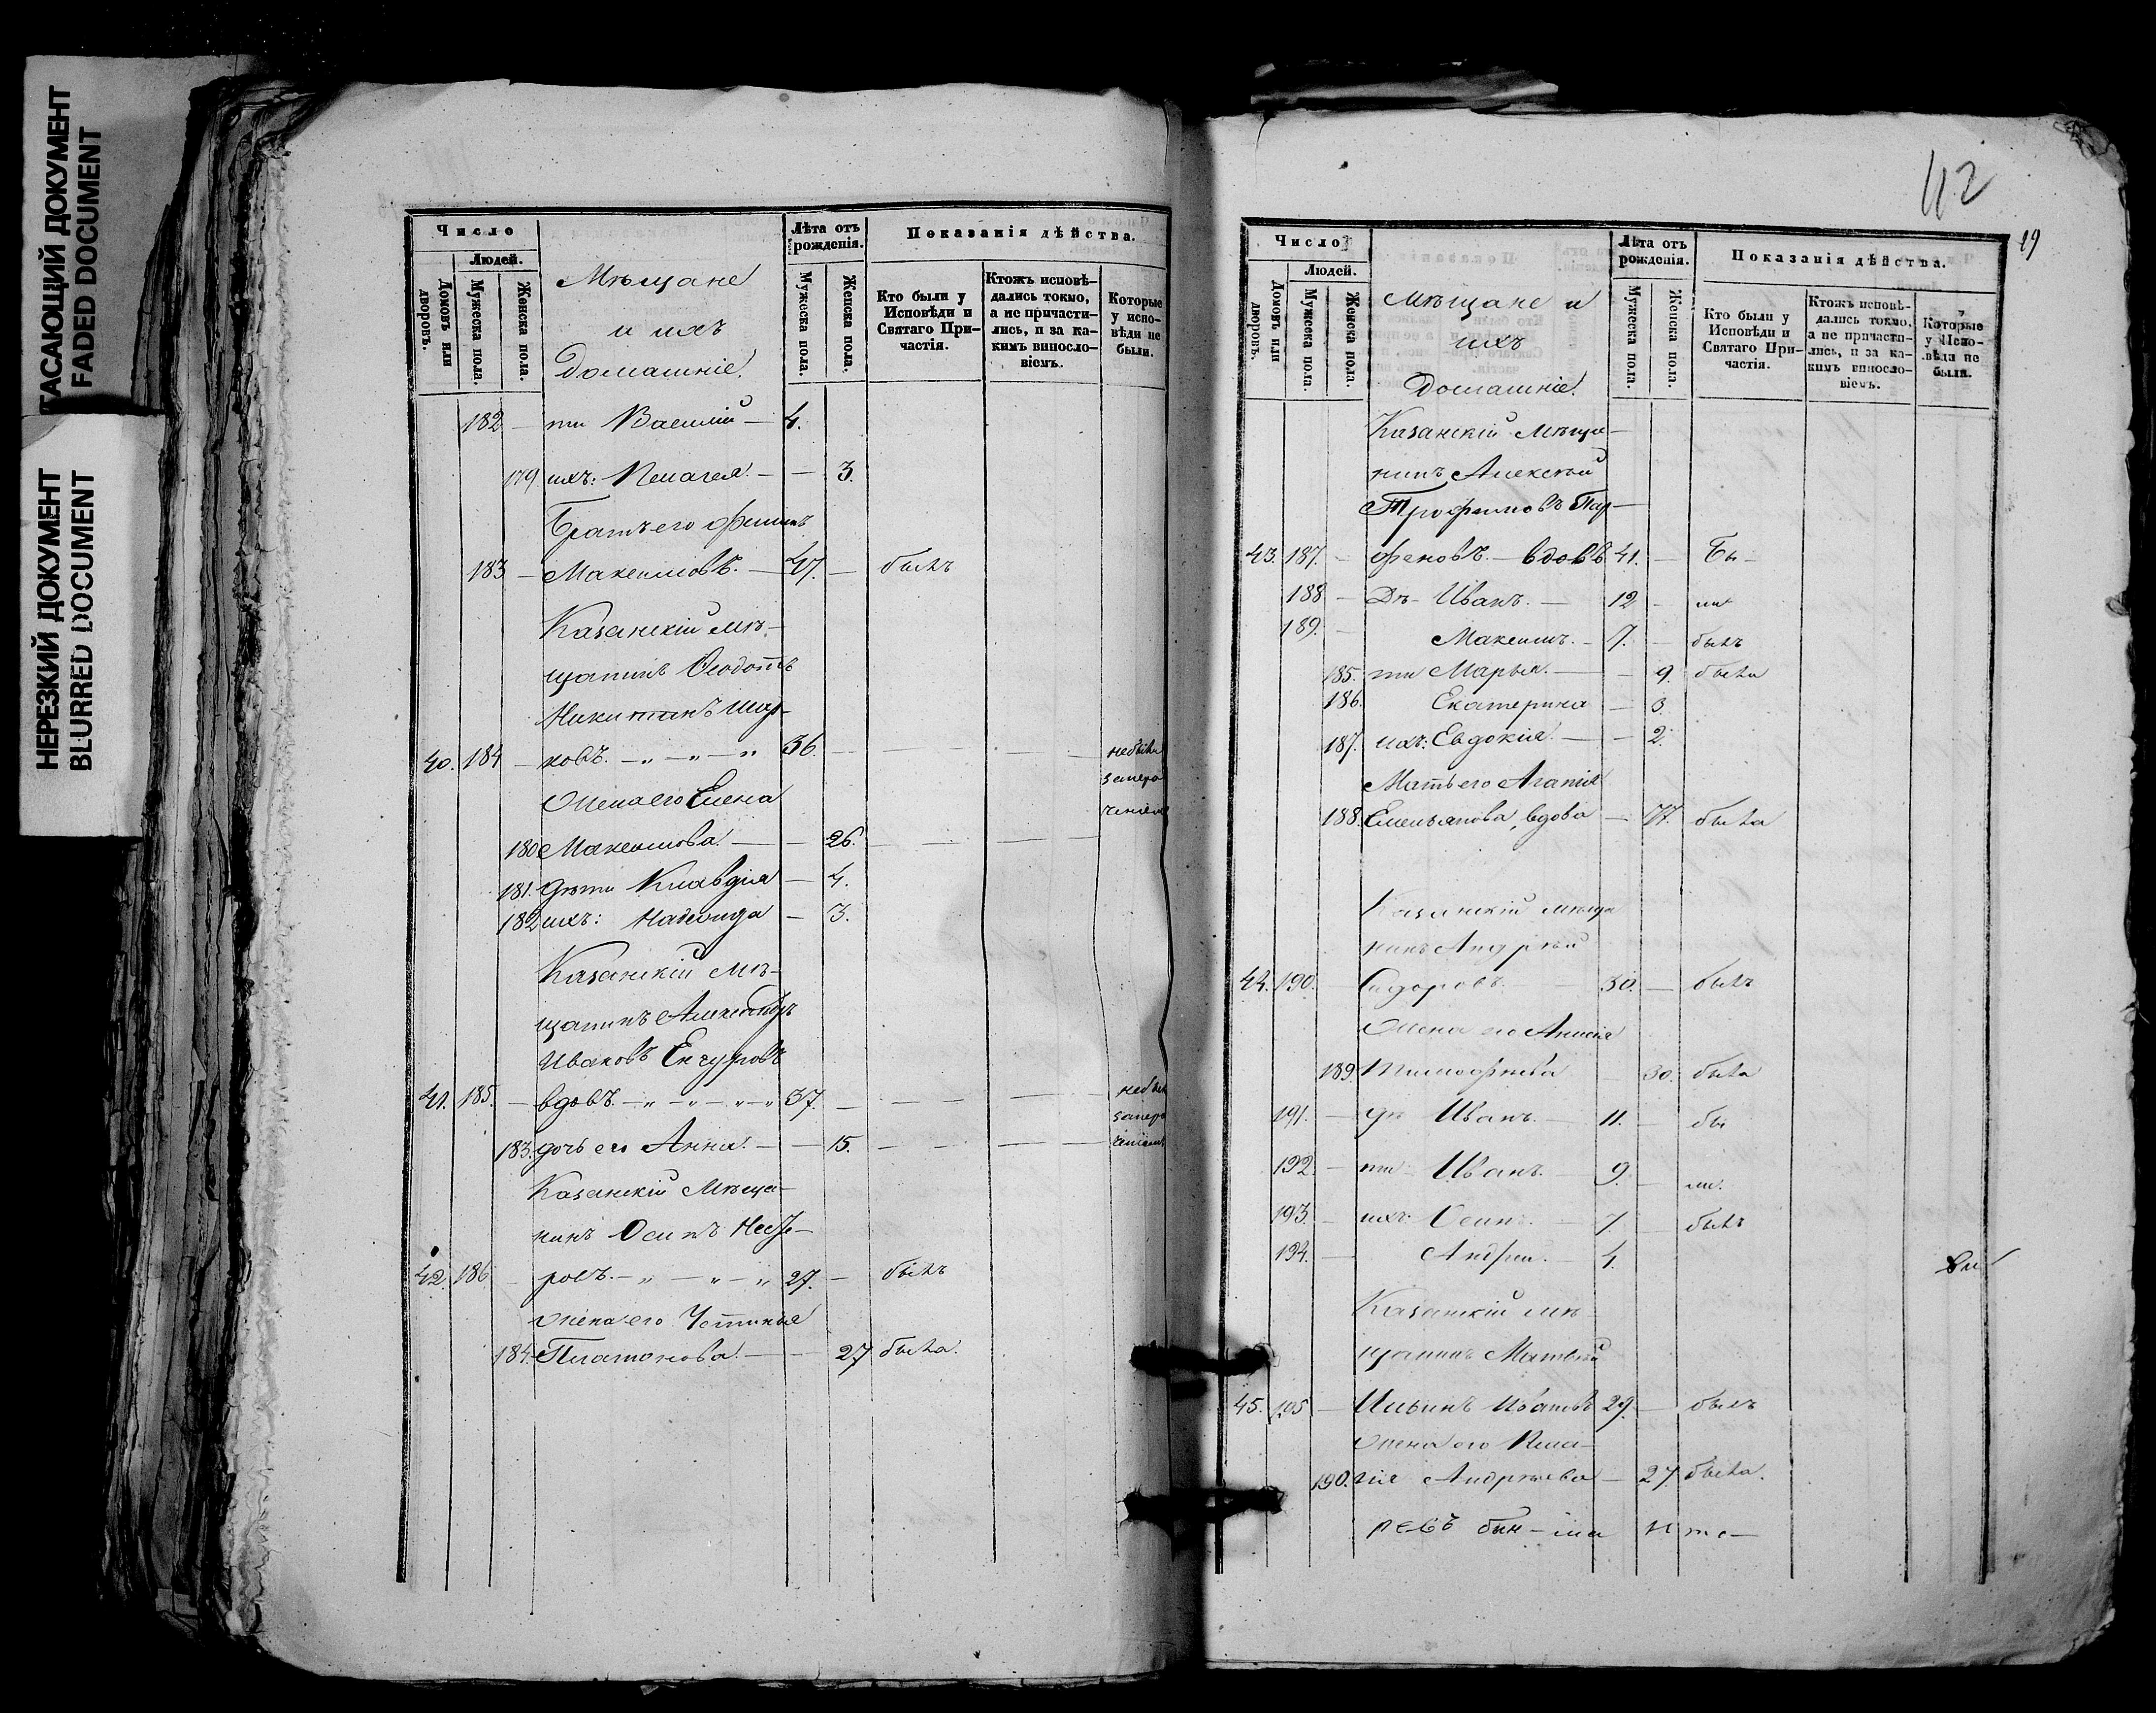 ГАСАЮЩИЙ ДОКУМЕНТ
FADED DOCUMENT
НЕРЕЗКИЙ ДОКУМЕНТ
BLURRED DOCUMENT
Число
Людей.
Домовъ или дворовъ.
Мужеска пола.
Женска пола.
Мѣщане
и ихъ
Домашніе.
Лѣта отъ рожденія.
Мужеска пола.
Женска пола.
Показанія дѣйства.
Кто были у Исповѣди и Святаго Причастія.
Ктожъ исповѣдались токмо, а не причастились, и за какимъ винословіемъ.
Которые у исповѣди не были.
182 — ти Василій — 4.
179 ихъ: Пелагея. — — 3.
Братъ его Филипъ
183 — Максимовъ. — 47. — былъ
Казанскій мѣ-
щанинъ Ѳеодотъ
Никитинъ
40. 184 — ковъ. — „ — „ — „ 36. — — — небыли
Жена его Елена
180 Максимова. — — 26. — — —
181. дѣти Клавдія — 4.
182 ихъ: Надежда — 3.
Казанскій мѣ-
щанинъ Александръ
Ивановъ
41. 185. — вдовъ. — „ — „ — „ — „ 37. — — — —
183. дочь его Анна. — — 15. — — — —
Казанскій Мѣща-
нинъ Осипъ
42. 186 — ровъ. — „ — „ — „ 27. — былъ
жена его Устинья
184. Платонова. — — 27 была.
112
19
Число
Людей.
Домовъ или дворовъ.
Мужеска пола.
Женска пола.
Мѣщане и
ихъ
Домашніе.
Лѣта отъ рожденія.
Мужеска пола.
Женска пола.
Показанія дѣйства.
Кто были у Исповѣди и Святаго Причастія.
Ктожъ исповѣдались токмо, а не причастились, и за какимъ винословіемъ.
Которые у Исповѣди не были.
Казанскій Мѣща-
нинъ Алексѣй
Трофимовъ Пар-
43. 187. — феновъ. — вдовъ 41. — Бы-
188 — Дѣ- Иванъ. — 12 — ли
189. — Максимъ. — 7. — былъ
185. ти Марья. — — 9. была
186. Екатерина — 3.
187. ихъ: Евдокія. — — 2.
Мать его Агапія
188. Емельянова, вдова — 77. была
Казанскій мѣща
нинъ Андрей
44. 190. — Сидоровъ. — 30. — былъ
Жена его Анисія
189. Тимофѣева — 30. была
191. — дѣ Иванъ. — 11. — бы
192. — ти Иванъ. — 9. — ли.
193. — ихъ: Осипъ. — 7 — былъ
194. — Андрей. — 4.
Казанскій мѣ
щанинъ Матвѣй
45. 195 — Ильинъ 29. — былъ
Жена его Пела-
190. гія Андреева — 27. была.